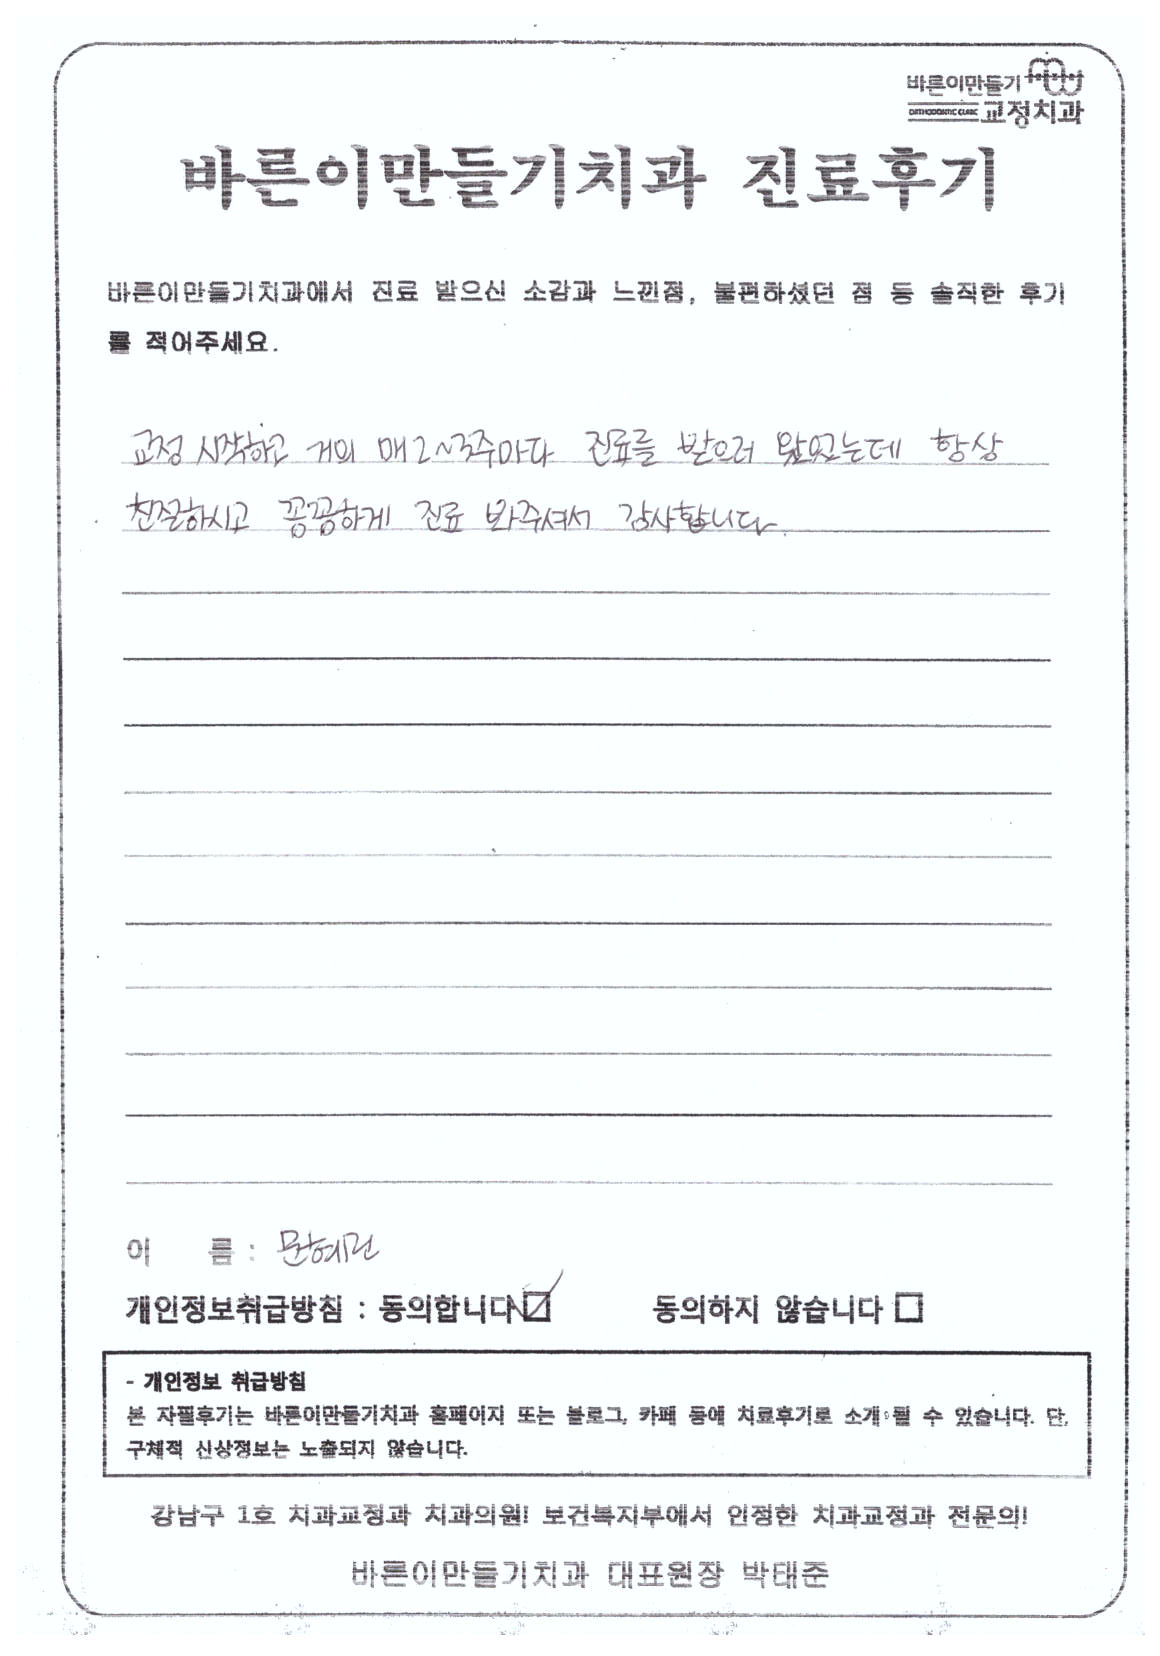 바른이만들기
ORTHODONTIC CLINIC 교정치과
바른이만들기치과 진료후기
바른이만들기치과에서 진료 받으신 소감과 느낀점, 불편하셨던 점 등 솔직한 후기
를 적어주세요.
교정 시작하고 거의 매 2~3주마다 진료를 받으러 왔었는데 항상
친절하시고 꼼꼼하게 진료 봐주셔서 감사합니다.
이 름 : 문혜린
개인정보취급방침 : 동의합니다 ☑ 동의하지 않습니다 □
- 개인정보 취급방침
본 자필후기는 바른이만들기치과 홈페이지 또는 블로그, 카페 등에 치료후기로 소개 될 수 있습니다. 단,
구체적 신상정보는 노출되지 않습니다.
강남구 1호 치과교정과 치과의원! 보건복지부에서 인정한 치과교정과 전문의!
바른이만들기치과 대표원장 박태준